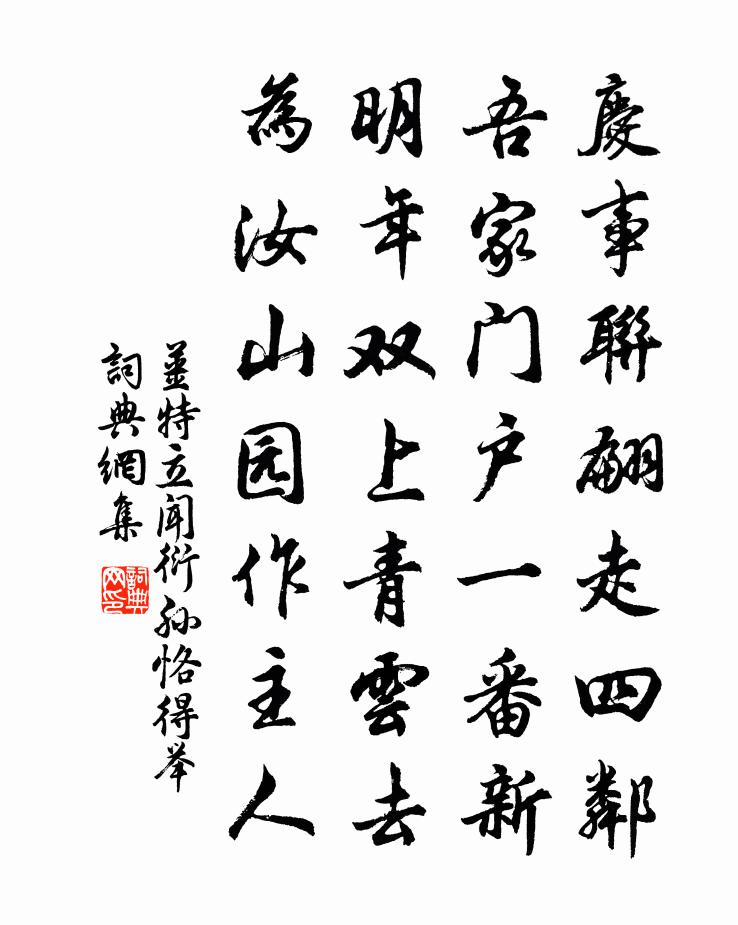 慶事聯翩走四鄰
吾家门户一番新
明年双上青雲去
為汝山园作主人
姜特立闻衍孙恪得举
詞典網集
詞典网印